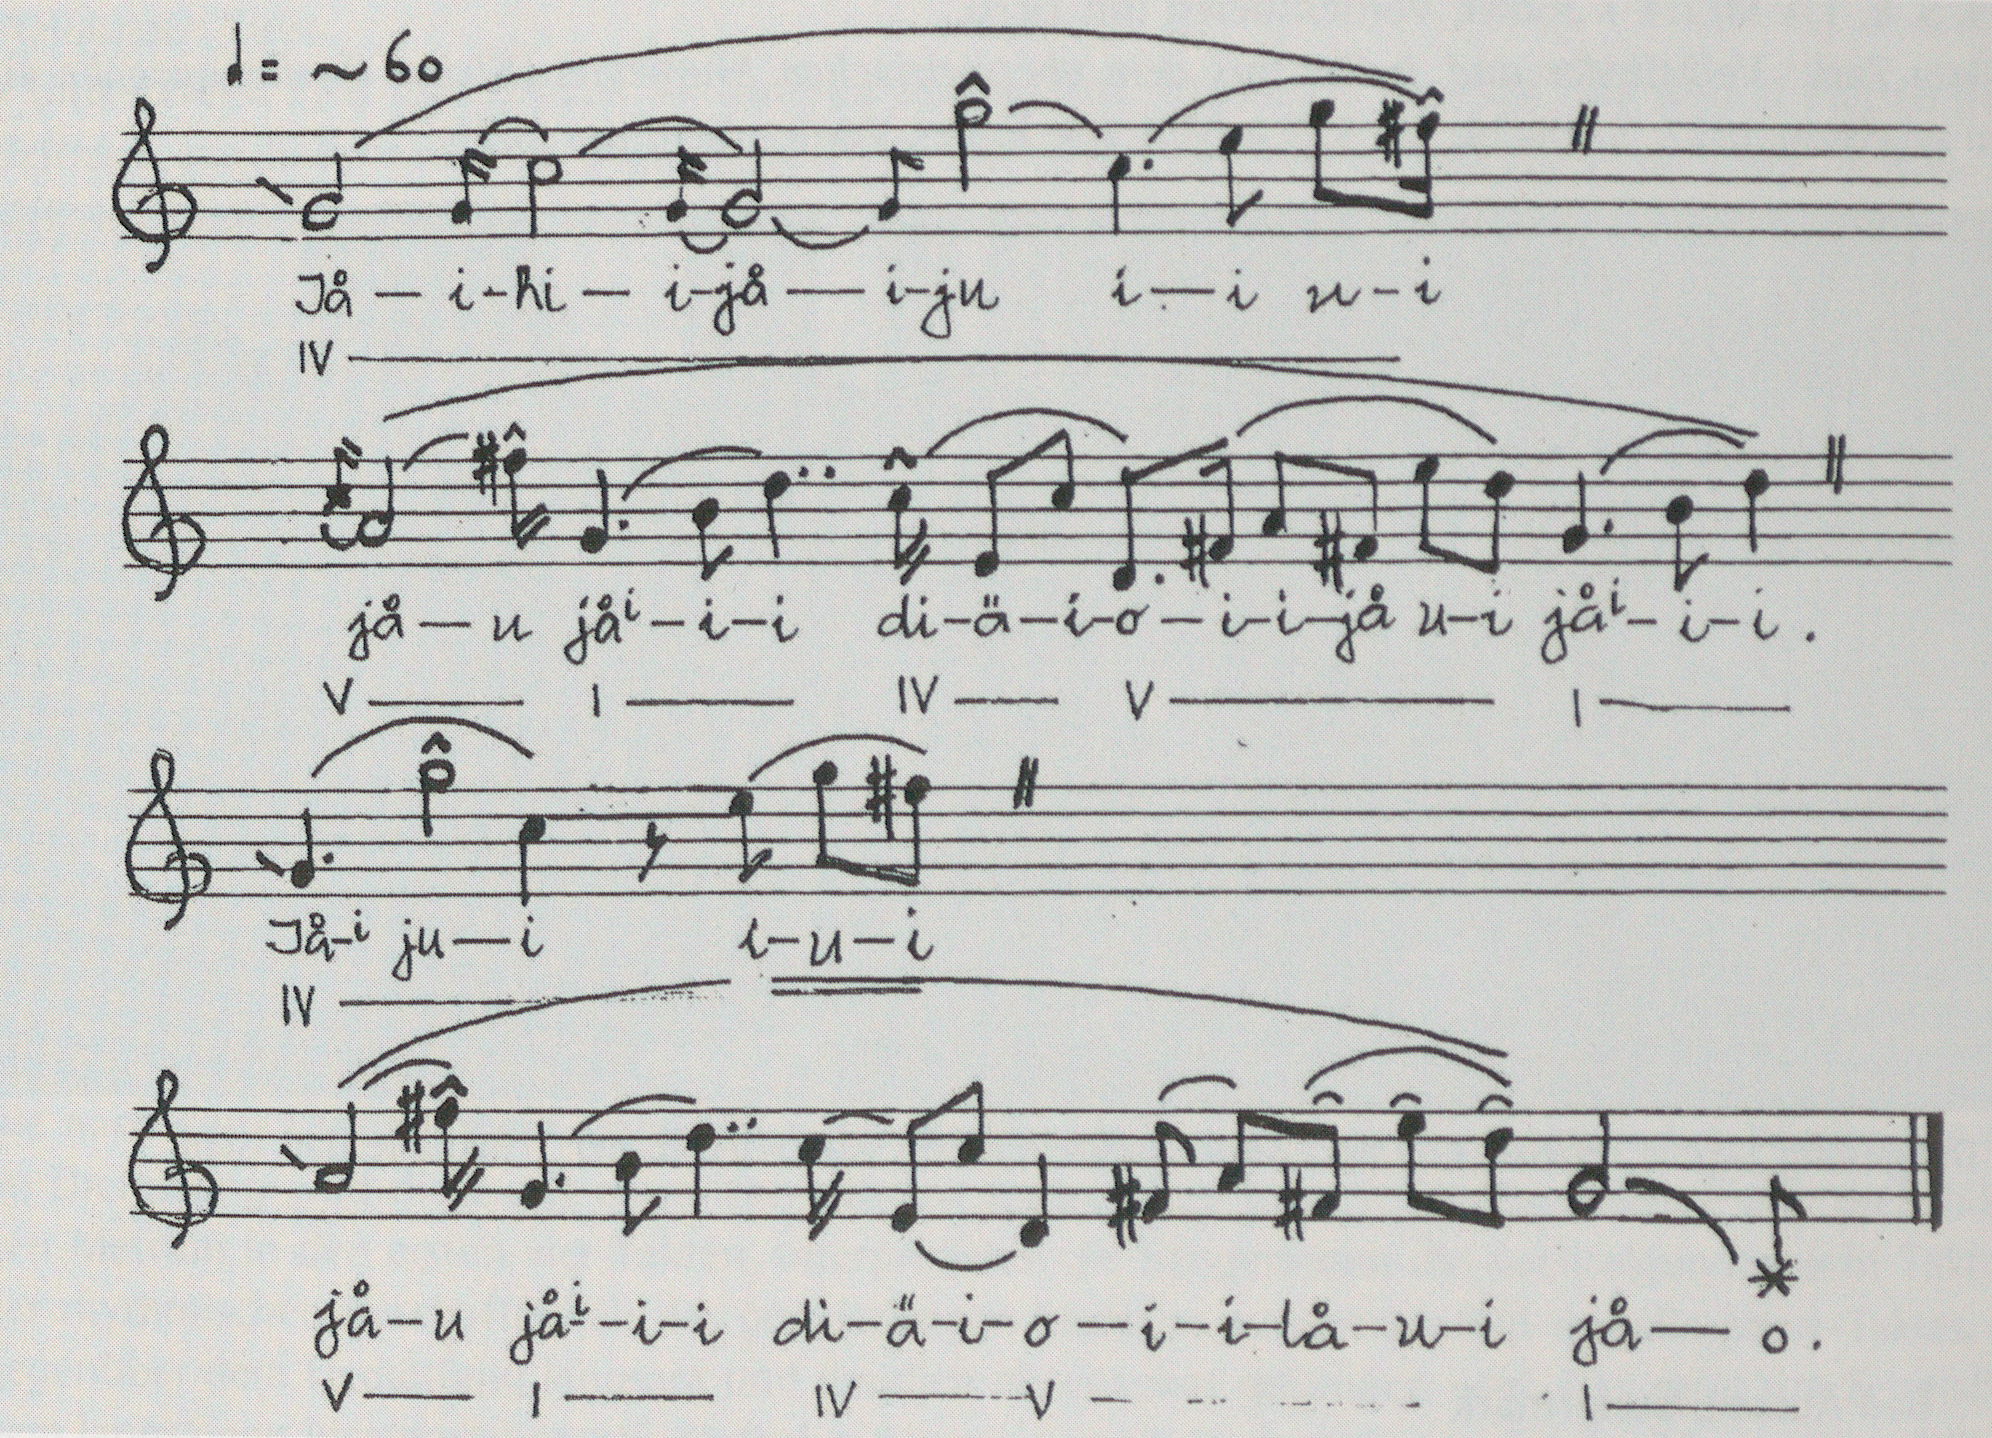 ♩ = ~ 60
Jå — i-hi — i-jå — i-ju i — i u-i
IV
jå — u jåⁱ-i-i di-ä-i-o-i-i-jå u-i jåⁱ-i-i.
V I IV V I
Jå-ⁱ ju — i i-u-i
IV
jå-u jåⁱ-i-i di-ä-i-o — i-i-lå-u-i jå — o.
V I IV V I